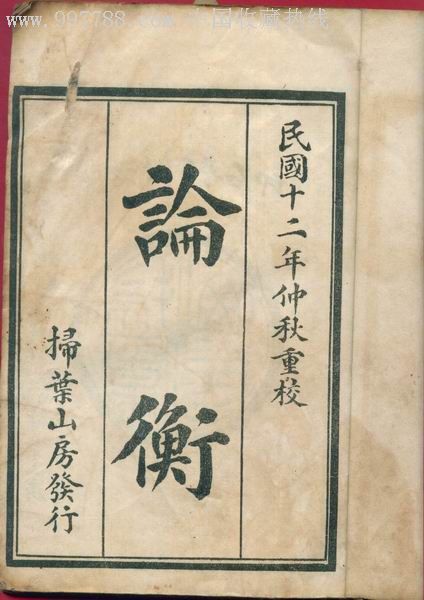 www.997788.com 中国收藏热线
民國十二年仲秋重校
論衡
掃葉山房發行